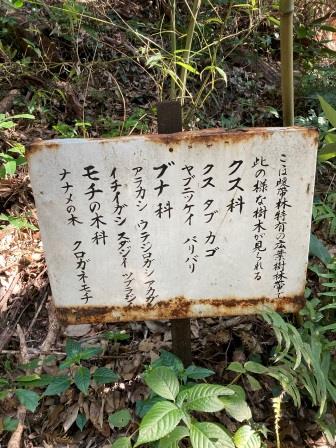 ここは暖帯林特有の広葉樹林帯で
此の様な樹木が見られる
クス科
クス タブ カゴ
ヤブニツケイ バリバリ
ブナ科
アラカシ ウラジロガシ アカガシ
イチイガシ スダジイ ツブラジイ
モチの木科
ナナメの木 クロガネモチ